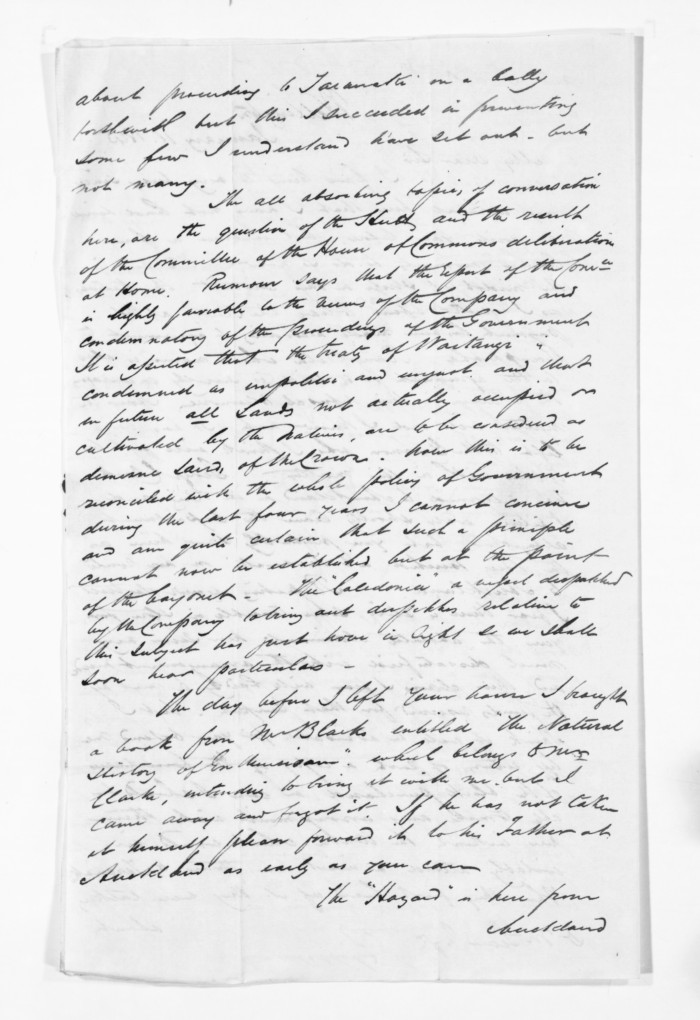 about proceeding to Taranaki on a
forthwith but this I succeeded in preventing
some few I understand have set out - but
not many.
The all absorbing topics of conversation
here, are the question of the and the result
of the Committee of the House of Commons deliberation
at Home. Rumour says that the report of the Comee
is highly favorable to the views of the Company and
condemnatory of the proceedings of the Government
It is asserted that the treaty of Waitangi is
condemned as unpolitic and unjust and that
in future all Lands not actually occupied or
cultivated by the Natives, are to be considered as
demesne Lands of the Crown. how this is to be
reconciled with the whole policy of Government
during the last four years I cannot conceive
and am quite certain that such a principle
cannot now be established but at the point
of the bayonet - The "Caledonia" a vessel despatched
by the Company to bring out despatches relative to
this subject has just hove in sight so we shall
soon hear particulars -
The day before I left your house I brought
a book from Mr Blacks entitled "The Natural
History of Enthusiasm" which belongs to Mr
Clarke, intending to bring it with me. but I
came away and forgot it. If he has not taken
it himself please forward it to his Father at
Auckland as early as you can
The "Hazard" is here from
Auckland